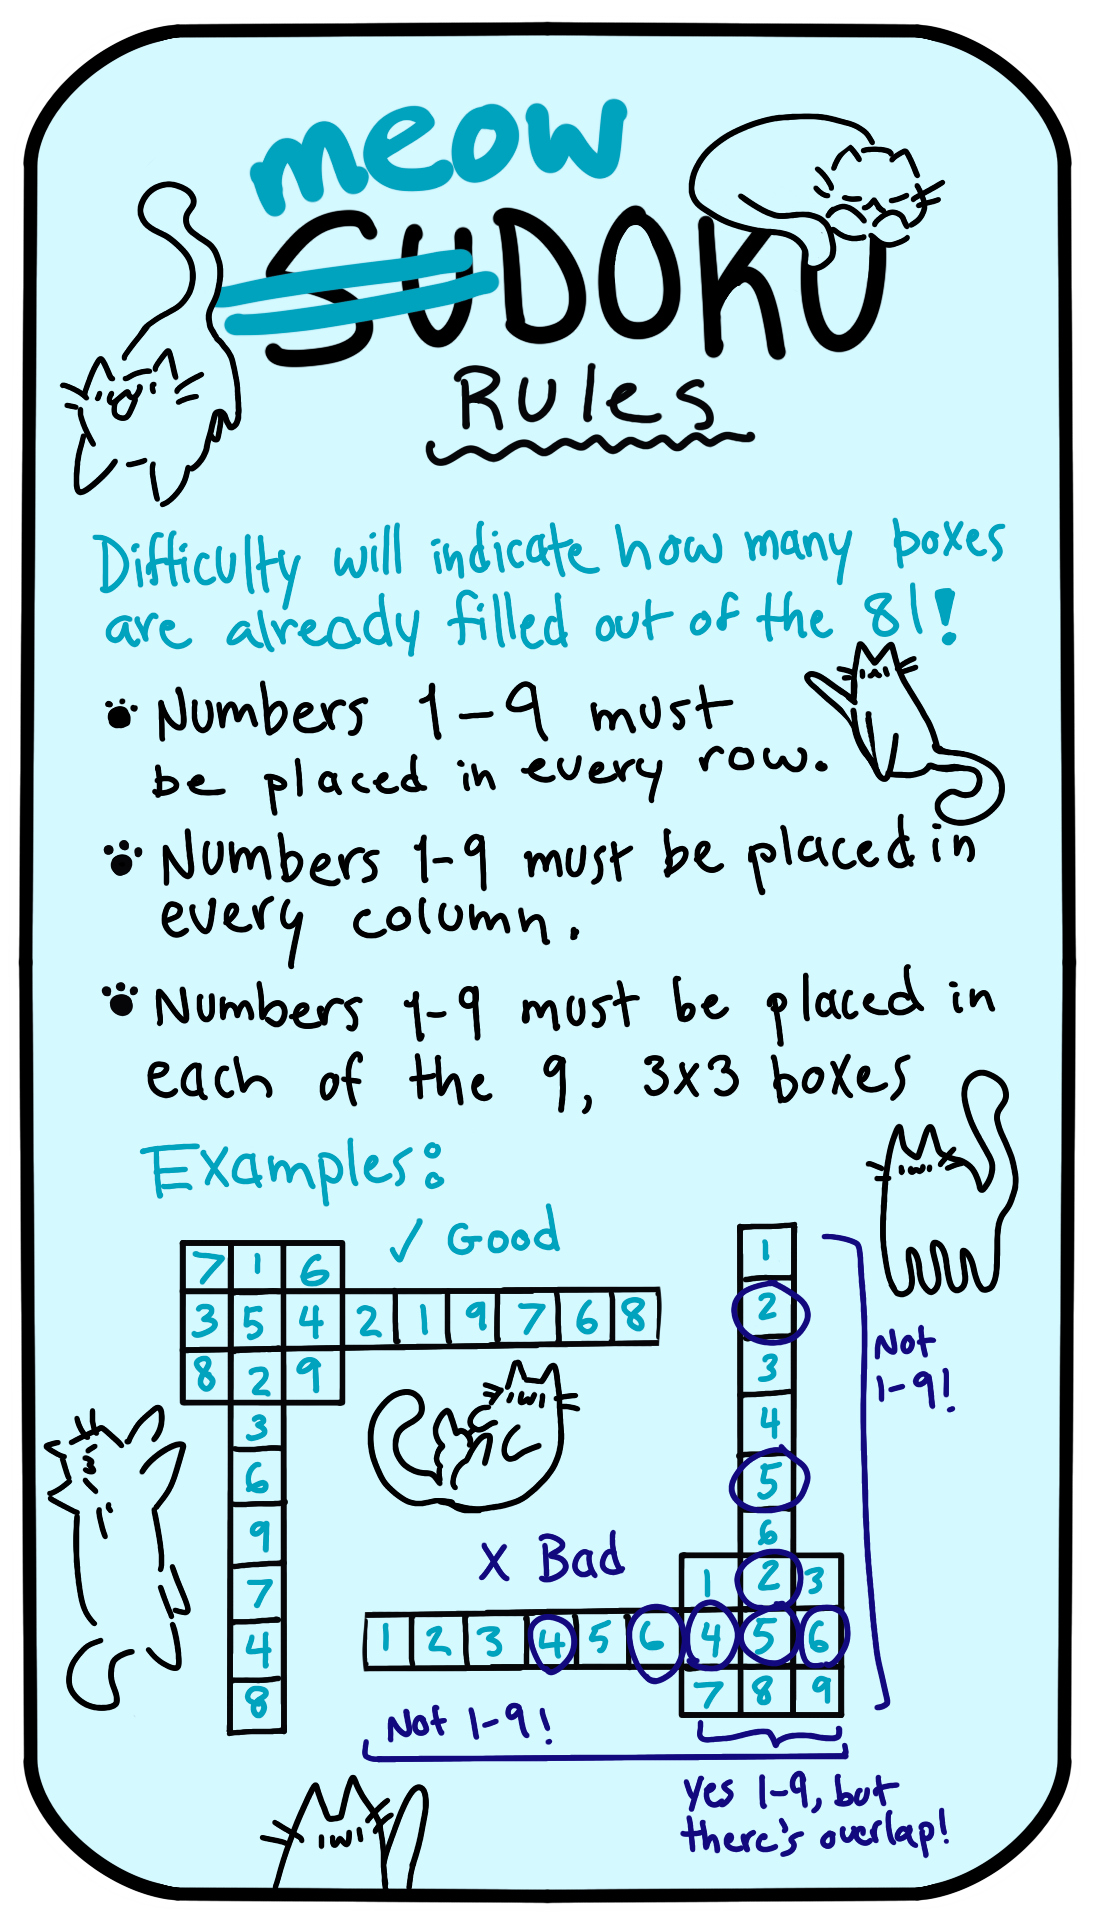 meow
SUDOKU
Rules
Difficulty will indicate how many boxes
are already filled out of the 81!
Numbers 1-9 must
be placed in every row.
Numbers 1-9 must be placed in
every column.
Numbers 1-9 must be placed in
each of the 9, 3x3 boxes
Examples:
✓ Good
7 1 6
3 5 4 2 1 9 7 6 8
8 2 9
3
6
9
7
4
8
1
2
3
4
5
6
Not
1-9!
X Bad
1 2 3
1 2 3 4 5 6 4 5 6
7 8 9
Not 1-9!
yes 1-9, but
there's overlap!